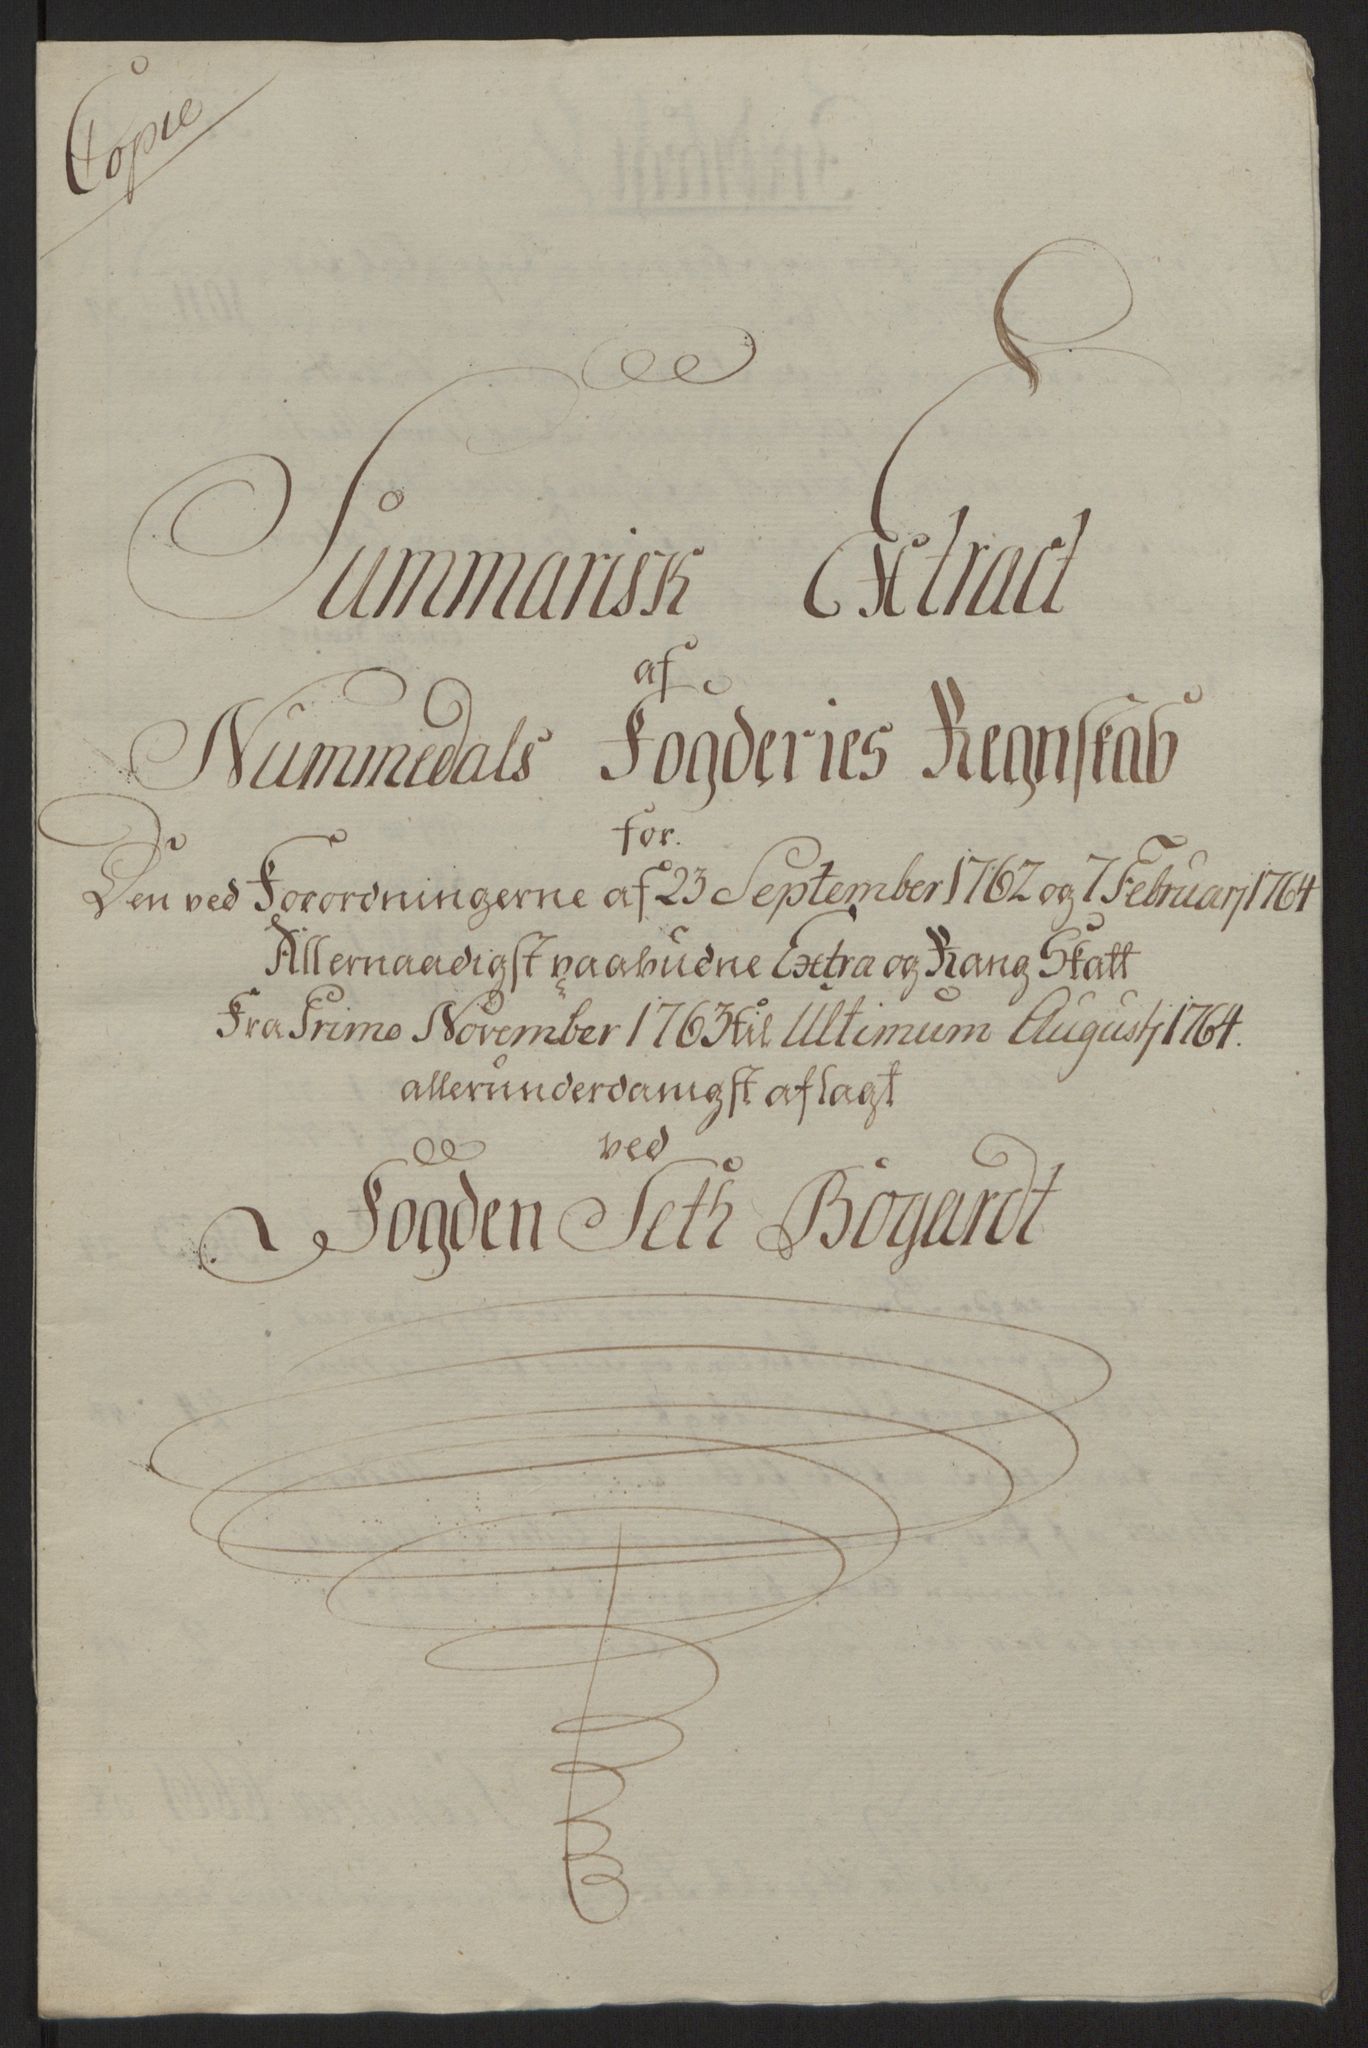 Copie
Summarisk Extract
af
Nummedals Fogderies Regnskab
for.
Den ved Forordningerne af 23 September 1762 og 7 Februarj 1764
Allernaadigst paabudne Extra og Rang Skatt
Fra Primo November 1763 til Ultimum Augustj 1764.
allerunderdanigst aflagt
ved
Fogden Seth Bogardt